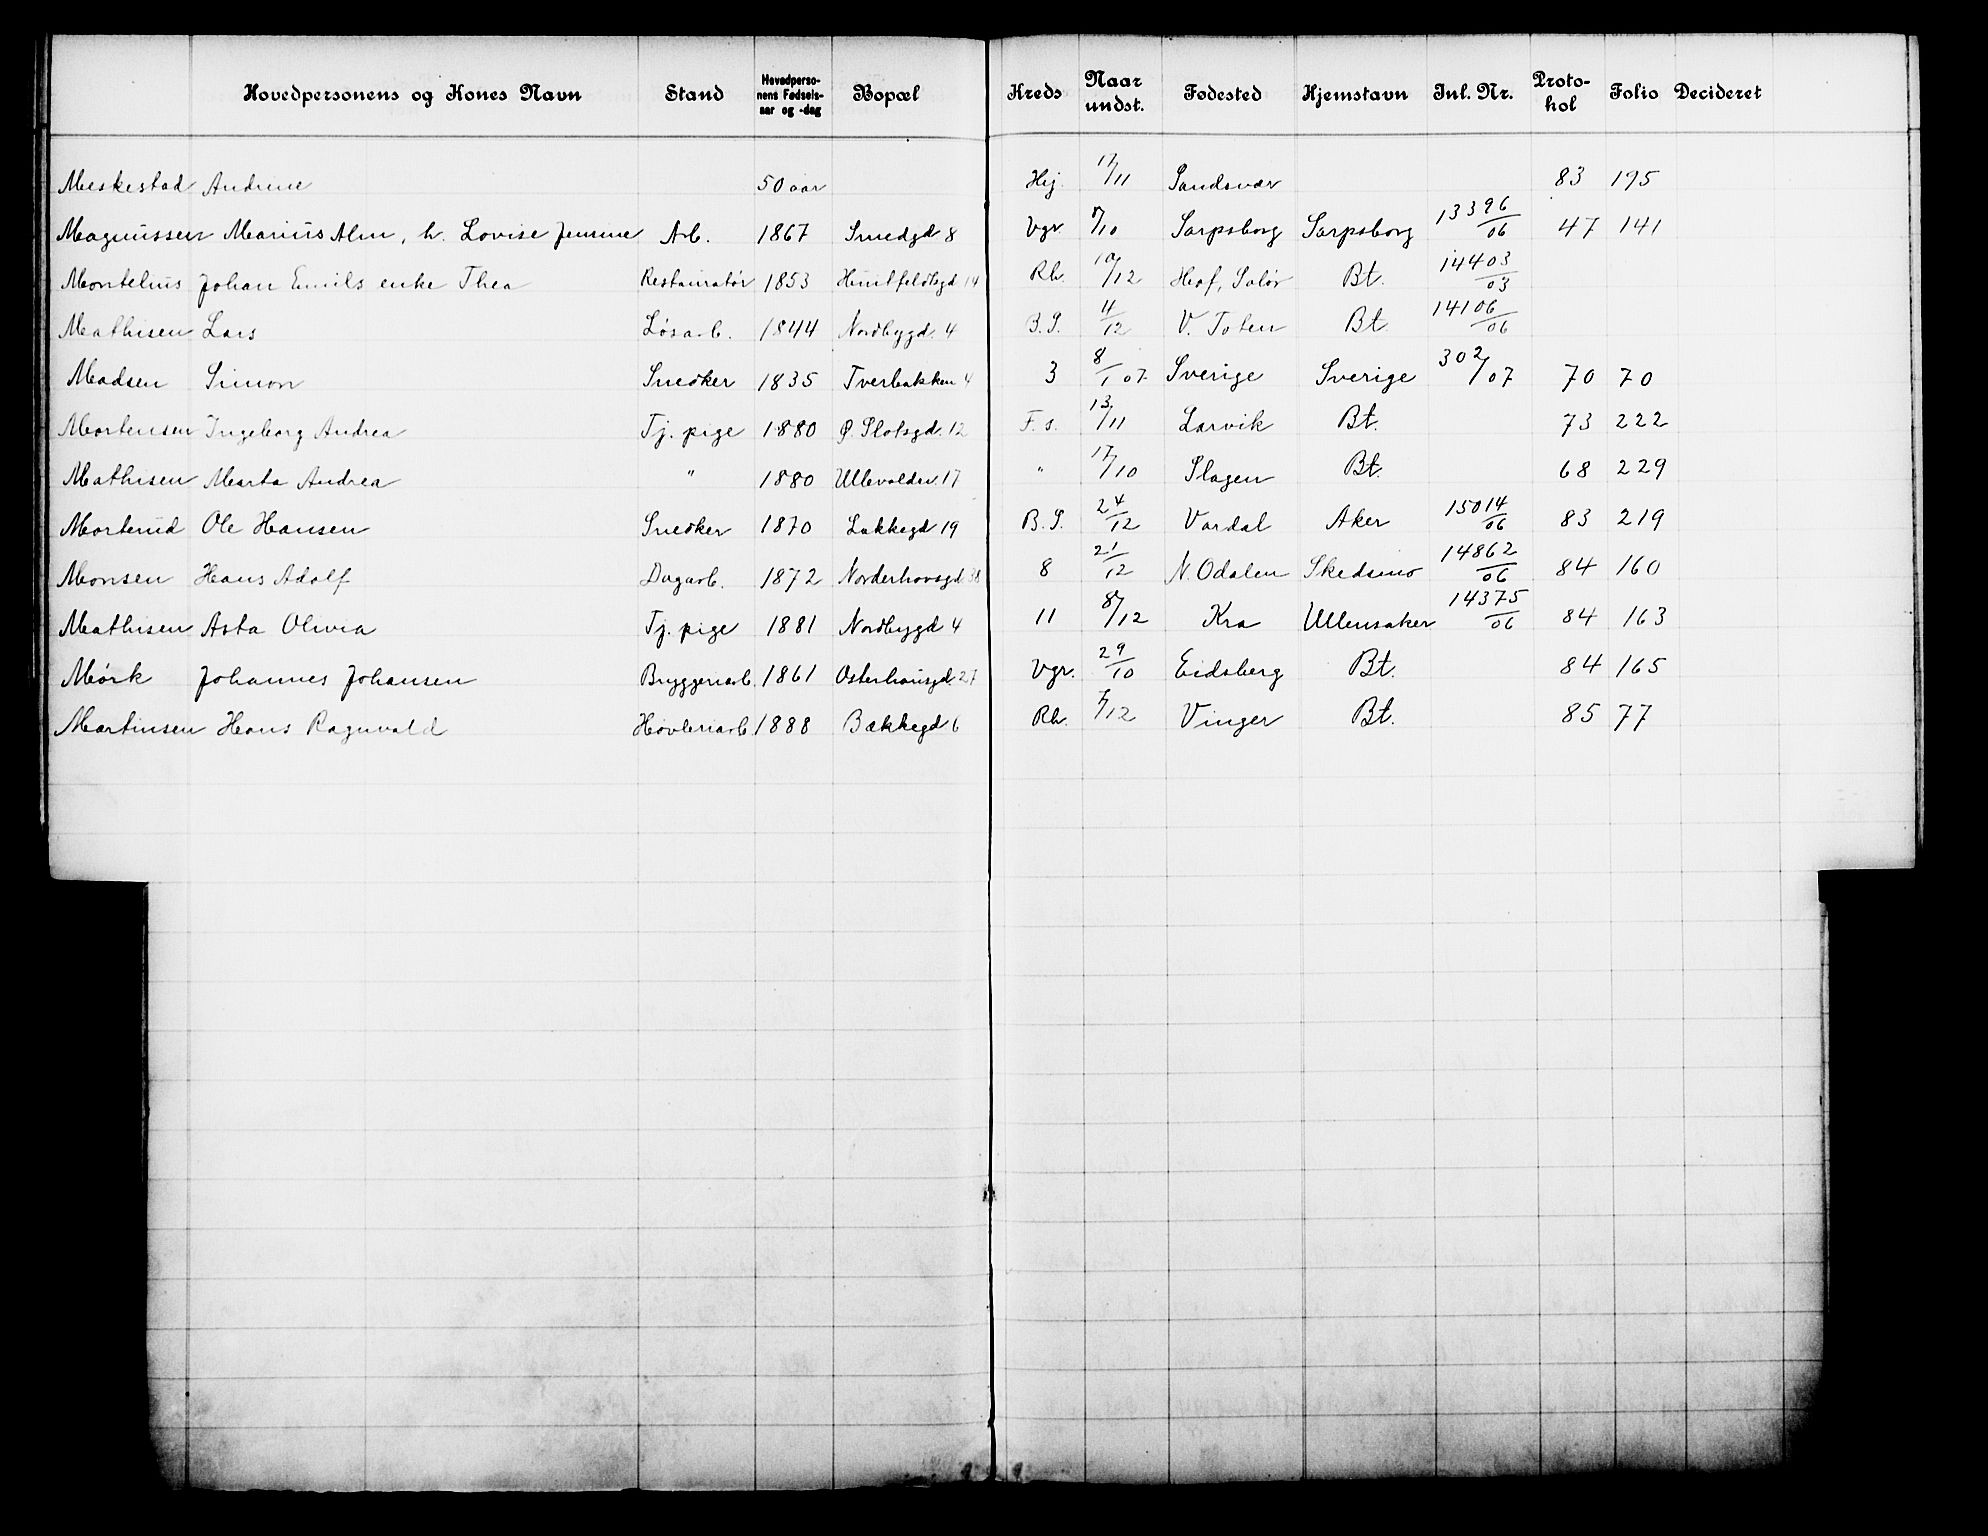 Hovedpersonens og Kones Navn | Stand | Hovedpersonens Fødselsaar og -dag | Bopæl | Kreds | Naar undst. | Fødested | Hjemstavn | Inl. Nr. | Protokol | Folio | Decideret
Meskestad Andrine | 50 aar | Hej. | 17/11 | Sandsvær | 83 | 195
Magnussen Marius Alm, h. Lovise Jensine | Arb. | 1867 | Smedgd 8 | Vgr. | 8/10 | Sarpsborg | Sarpsborg | 13396/06 | 47 | 141
Montelius Johan Emils enke Thea | Restauratør | 1853 | Huitfeldtsgd 14 | Rh. | 10/12 | Hof, Solør | Bt. | 14403/03
Mathisen Lars | Løsarb. | 1844 | Nordbygd. 4 | B.S. | 11/12 | V. Toten | Bt. | 14106/06
Madsen Simon | Snedker | 1835 | Tverbakken 4 | 3 | 8/1 07 | Sverige | Sverige | 302/07 | 70 | 70
Mortensen Ingeborg Andrea | Tj. pige | 1880 | Ø. Slotsgd. 12 | F. s. | 13/11 | Larvik | Bt. | 73 | 222
Mathisen Marta Andrea | " | 1880 | Ullevoldsv. 17 | " | 17/10 | Slagen | Bt. | 68 | 229
Morterud Ole Hansen | Snedker | 1870 | Lakkegd 19 | B.S. | 24/12 | Vardal | Aker | 15014/06 | 83 | 219
Monsen Hans Adolf | Dagarb. | 1872 | Norderhovsgd. 38 | 8 | 21/12 | N. Odalen | Skedsmo | 14862/06 | 84 | 160
Mathisen Asta Olivia | Tj. pige | 1881 | Nordbygd 4 | 11 | 8/12 | Kra | Ullensaker | 14375/06 | 84 | 163
Mørk Johannes Johansen | Bryggeriarb. | 1861 | Osterhausgd. 27 | Vgr. | 29/10 | Eidsberg | Bt. | 84 | 165
Martinsen Hans Ragnvald | Høvleriarb. | 1888 | Bakkegd 6 | Rh. | 5/12 | Vinger | Bt. | 85 | 77